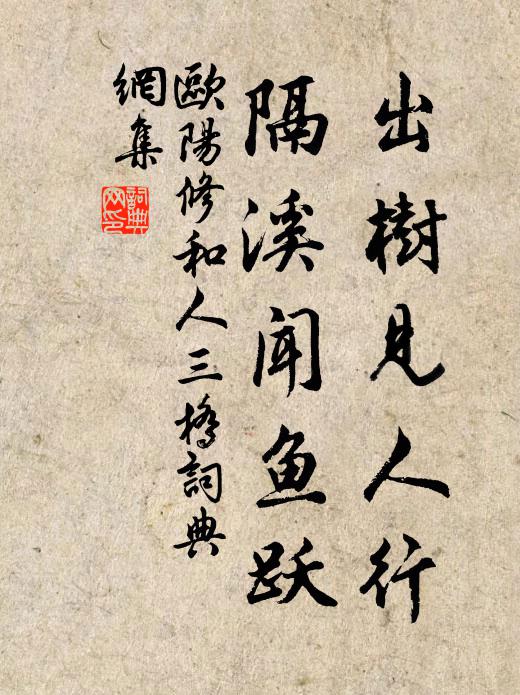 出樹見人行
隔溪聞鱼跃
歐陽修和人三橋詞典
網集
詞典网印